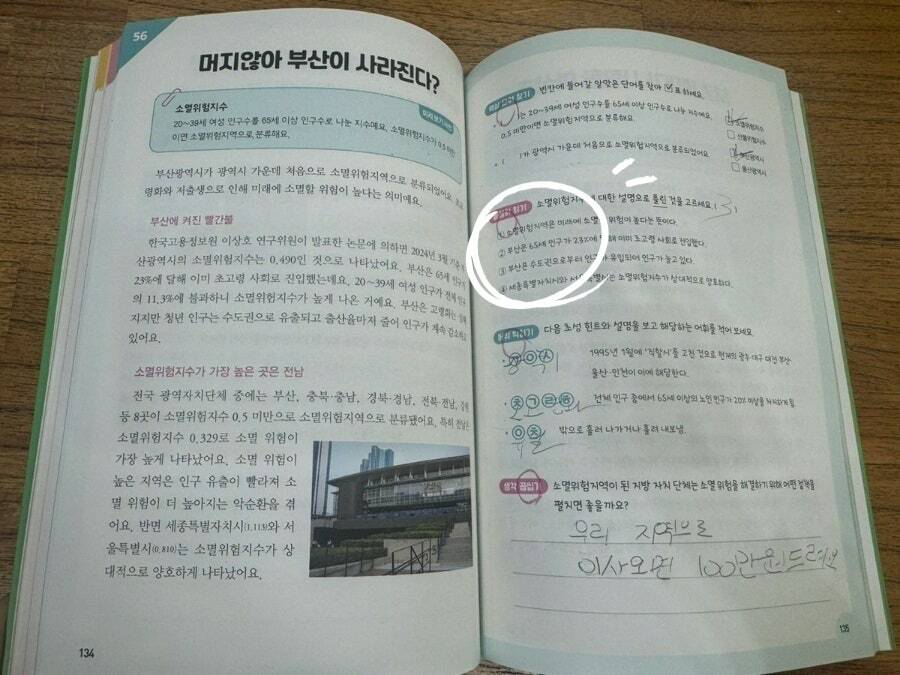 56
머지않아 부산이 사라진다?
소멸위험지수
20~39세 여성 인구수를 65세 이상 인구수로 나눈 지수예요. 소멸위험지수가 0.5 미만
이면 소멸위험지역으로 분류해요.
부산광역시가 광역시 가운데 처음으로 소멸위험지역으로 분류되었어요.
령화와 저출생으로 인해 미래에 소멸할 위험이 높다는 의미예요.
부산에 켜진 빨간불
한국고용정보원 이상호 연구위원이 발표한 논문에 의하면 2024년 3월 기준
산광역시의 소멸위험지수는 0.490인 것으로 나타났어요. 부산은 65세 인구
23%에 달해 이미 초고령 사회로 진입했는데요. 20~39세 여성 인구가 전체 인구
의 11.3%에 불과하니 소멸위험지수가 높게 나온 거예요. 부산은 고령화는
지지만 청년 인구는 수도권으로 유출되고 출산율마저 줄어 인구가 계속 감소하고
있어요.
소멸위험지수가 가장 높은 곳은 전남
전국 광역자치단체 중에는 부산, 충북·충남, 경북·경남, 전북·전남,
등 8곳이 소멸위험지수 0.5 미만으로 소멸위험지역으로 분류됐어요. 특히 전남은
소멸위험지수 0.329로 소멸 위험이
가장 높게 나타났어요. 소멸 위험이
높은 지역은 인구 유출이 빨라져 소
멸 위험이 더 높아지는 악순환을 겪
어요. 반면 세종특별자치시(1.113)와 서
울특별시(0.810)는 소멸위험지수가 상
대적으로 양호하게 나타났어요.
134
빈칸에 들어갈 알맞은 단어를 찾아 ☑표 하세요.
는 20~39세 여성 인구수를 65세 이상 인구수로 나눈 지수예요.
0.5 미만이면 소멸위험지역으로 분류해요.
가 광역시 가운데 처음으로 소멸위험지역으로 분류되었어요.
소멸위험지수
산불위험지수
부산광역시
울산광역시
소멸위험지수에 대한 설명으로 틀린 것을 고르세요. (3)
① 소멸위험지역은 미래에 소멸 위험이 높다는 뜻이다.
② 부산은 65세 인구가 23%에 달해 이미 초고령 사회로 진입했다.
③ 부산은 수도권으로부터 인구가 유입되어 인구가 늘고 있다.
④ 세종특별자치시와 서울특별시는 소멸위험지수가 상대적으로 양호하다.
다음 초성 힌트와 설명을 보고 해당하는 어휘를 적어 보세요.
광역시
1995년 1월에 '직할시'를 고친 것으로 현재의 광주·대구·대전·부산·
울산·인천이 이에 해당한다.
전체 인구 중에서 65세 이상의 노인 인구가 20% 이상을 차지하게 됨.
유출
밖으로 흘러 나가거나 흘려 내보냄.
생각 곱씹기
소멸위험지역이 된 지방 자치 단체는 소멸 위험을 해결하기 위해 어떤 정책을
펼치면 좋을까요?
우리 지역으로
이사오면 100만원드려요
135